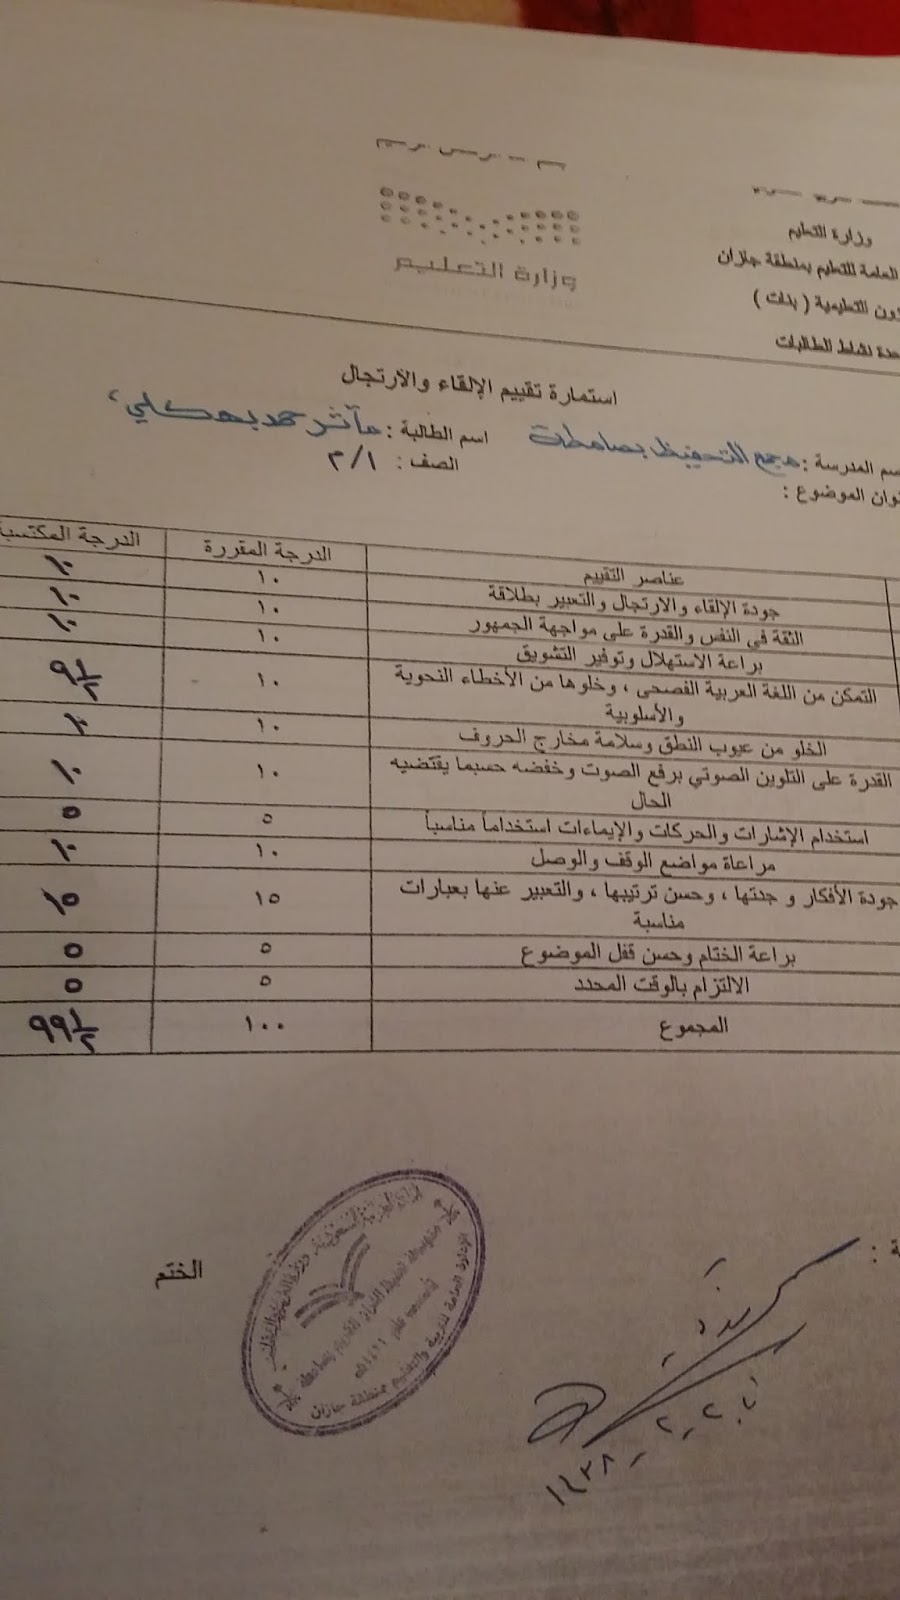 وزارة التعليم
وزارة التعليم
العامة للتعليم بمنطقة جازان
ون التعليمية ( بنات )
دة نشاط الطالبات
استمارة تقييم الإلقاء والارتجال
سم المدرسة : مجمع التحفيظ بصامطة اسم الطالبة : مآثر حمد بهكلي
وان الموضوع : الصف : ١/٣
عناصر التقييم الدرجة المقررة الدرجة المكتسبة
جودة الإلقاء والارتجال والتعبير بطلاقة ١٠ ١٠
الثقة في النفس والقدرة على مواجهة الجمهور ١٠ ١٠
براعة الاستهلال وتوفير التشويق ١٠ ١٠
التمكن من اللغة العربية الفصحى ، وخلوها من الأخطاء النحوية ١٠ ٩١/٢
والأسلوبية
الخلو من عيوب النطق وسلامة مخارج الحروف ١٠ ١٠
القدرة على التلوين الصوتي برفع الصوت وخفضه حسبما يقتضيه ١٠ ١٠
الحال
استخدام الإشارات والحركات والإيماءات استخداماً مناسباً ٥ ٥
مراعاة مواضع الوقف والوصل ١٠ ١٠
جودة الأفكار و جدتها ، وحسن ترتيبها ، والتعبير عنها بعبارات ١٥ ١٥
مناسبة
براعة الختام وحسن قفل الموضوع ٥ ٥
الالتزام بالوقت المحدد ٥ ٥
المجموع ١٠٠ ٩٩١/٢
الختم
الإدارة العامة للتربية والتعليم بمنطقة جازان
١٤٣٨